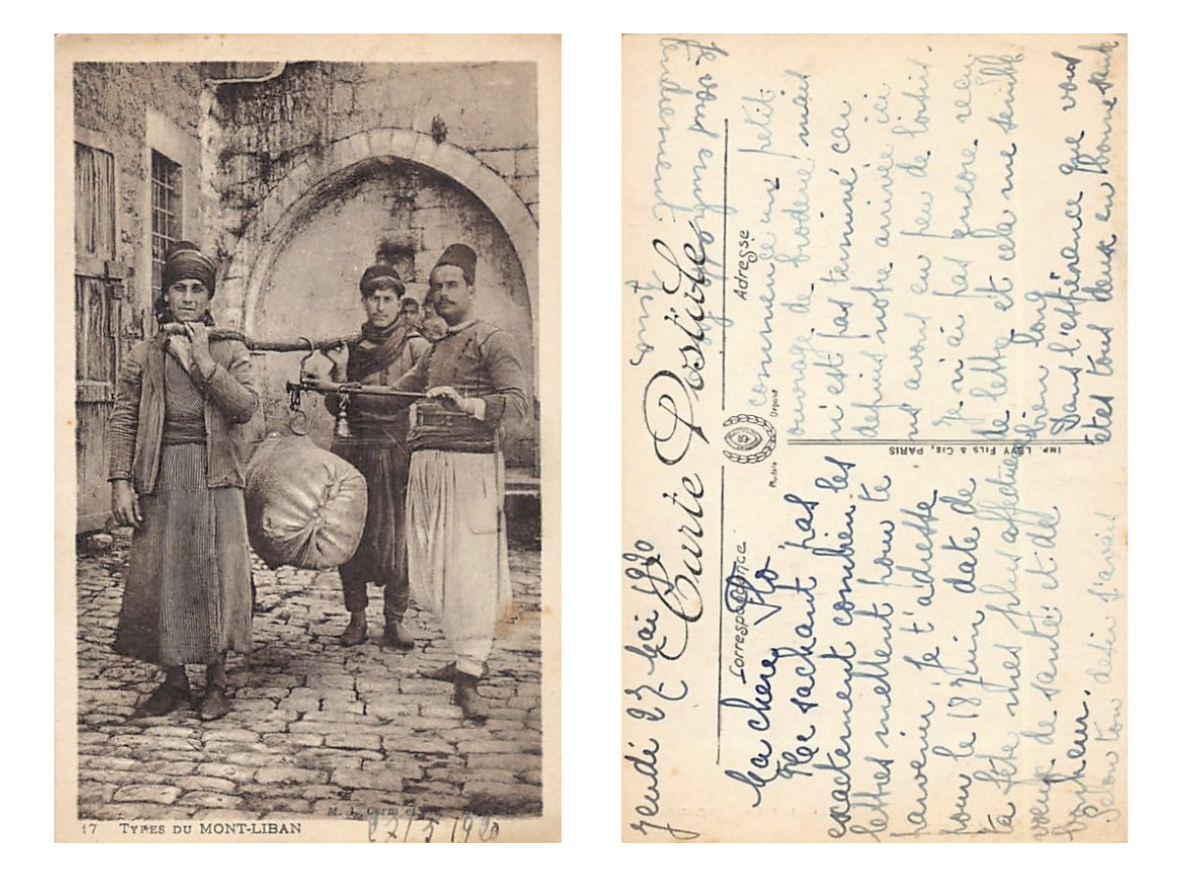 17 TYPES DU MONT-LIBAN
27/5 1920
Jeudi 27 Mai 1920
Carte Postale
Correspondance
Adresse
IMP. LÉVY FILS & CIE, PARIS
Modèle
Déposé
Ma chère Flo
Ne sachant pas
exactement combien les
lettres mettent pour te
parvenir je t'adresse
pour le 18 Juin date de
ta fête mes plus affectueux
voeux de santé et de
bonheur.
Selon ton désir j'avais
commencé un petit
ouvrage de broderie mais
n'est pas terminé car
depuis notre arrivée ici
nous avons eu peu de loisir.
Je n'ai pas encore reçu
de lettre et cela me semble
bien long
Dans l'espérance que vous
êtes tous deux en bonne santé
Je vous
tendrement